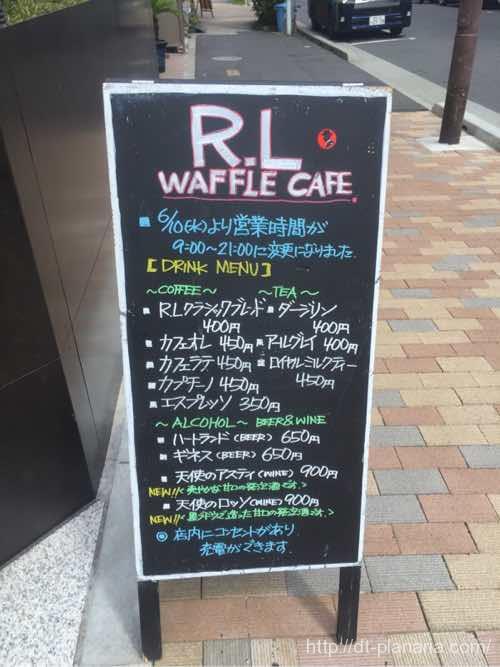 R.L
WAFFLE CAFE
6/10(水)より営業時間が
9:00〜21:00に変更になりました
[DRINK MENU]
〜COFFEE〜 〜TEA〜
R.Lクラシックブレッド ダージリン
400円 400円
カフェオレ 450円 アールグレイ 400円
カフェラテ 450円 ロイヤルミルクティー
カプチーノ 450円 450円
エスプレッソ 350円
〜ALCOHOL〜 BEER&WINE
ハートランド(BEER) 650円
ギネス(BEER) 650円
天使のアスティ(WINE) 900円
NEW!! <爽やかな甘口の発泡酒です。>
天使のロッソ(WINE) 900円
NEW!! <黒ブドウで造った甘口の発泡酒です。>
店内にコンセントがあり
充電ができます
http://dt-planaria.com/